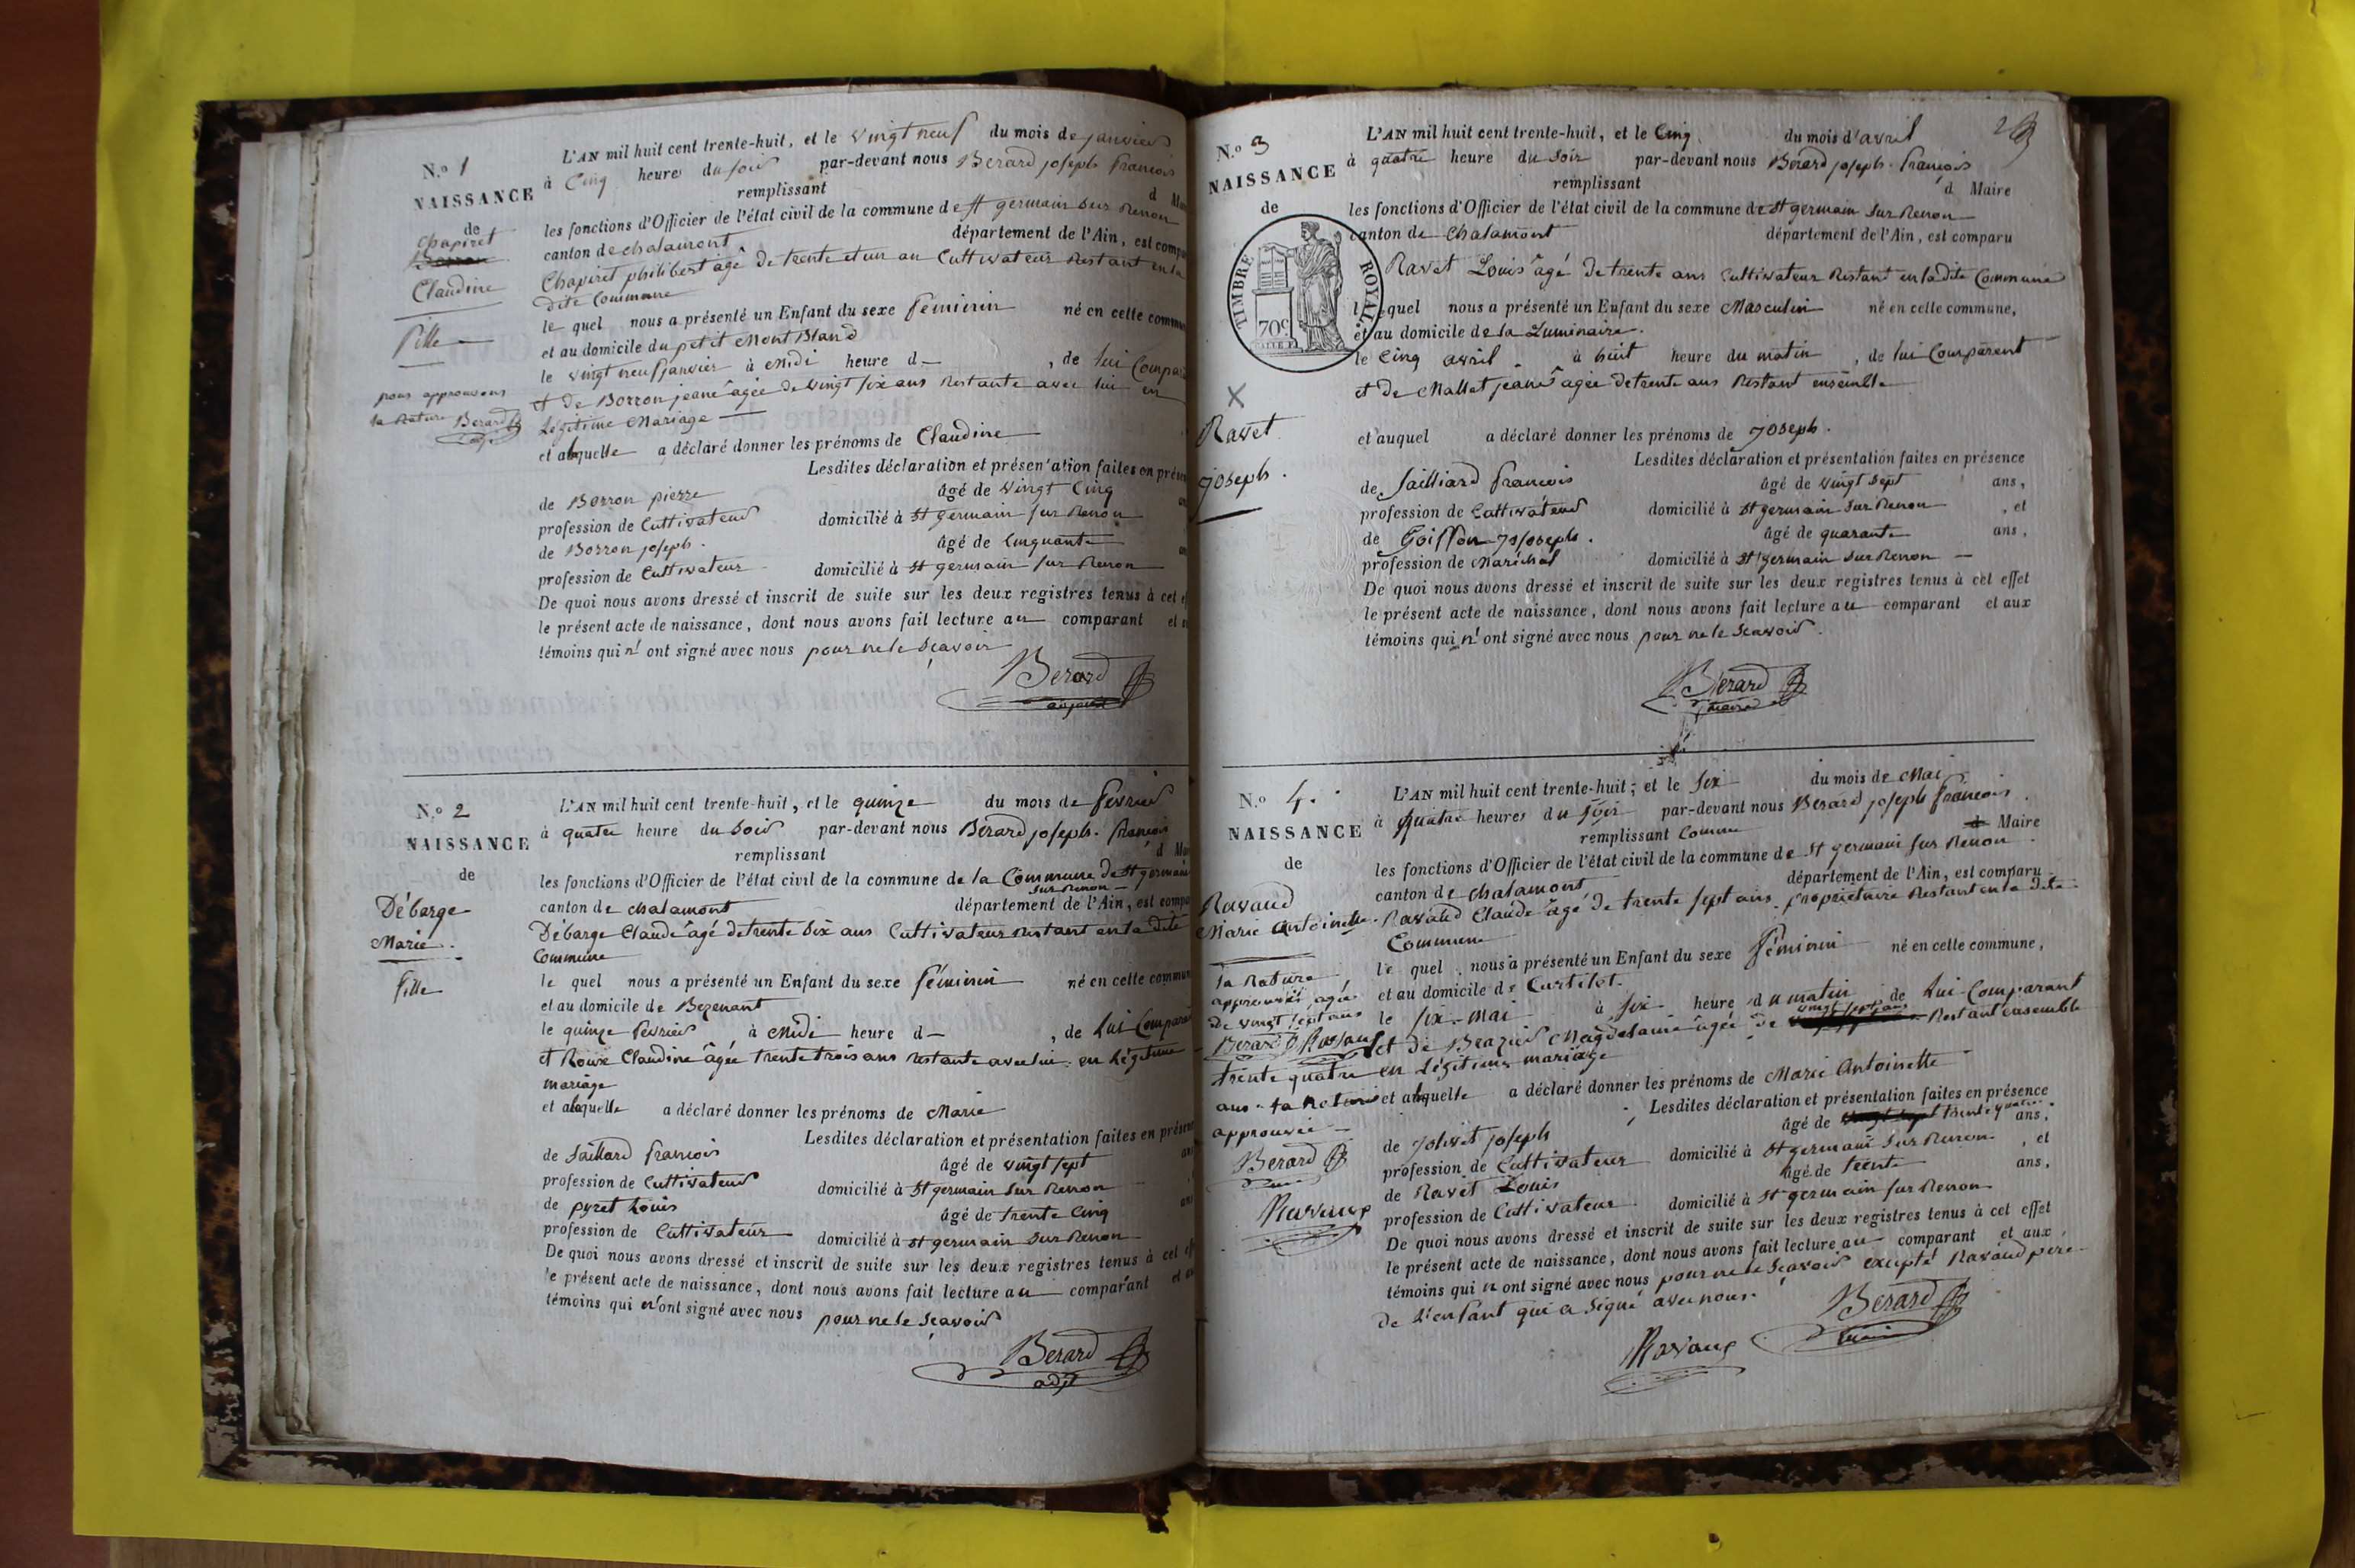 N.o 1
NAISSANCE
de
Chapiret
Claudine
fille
pour approuvons
la Rature Berard
L'AN mil huit cent trente-huit, et le vingt neuf du mois de janvier
à Cinq heures du soir par-devant nous Berard joseph françois
remplissant d M
les fonctions d'Officier de l'état civil de la commune de st germain sur Renon
canton de chalamont département de l'Ain, est compa
Chapiret philibert âgé de trente et un an Cultivateur Restant en la
dite Commune
le quel nous a présenté un Enfant du sexe féminin né en cette commu
et au domicile du petit Mont Bland
le vingt neuf janvier à Midi heure d , de lui Compa
et de Borron jeane âgée de vingt six ans Restante avec lui en
Légitime Mariage
et a laquelle a déclaré donner les prénoms de Claudine
Lesdites déclaration et présentation faites en prése
de Borron pierre âgé de vingt Cinq
profession de Cultivateur domicilié à St germain sur Renon
de Borron joseph. âgé de Cinquante
profession de Cultivateur domicilié à st germain sur Renon
De quoi nous avons dressé et inscrit de suite sur les deux registres tenus à cet e
le présent acte de naissance, dont nous avons fait lecture au comparant et a
témoins qui n' ont signé avec nous pour ne le Scavoir
Berard
N.o 2
NAISSANCE
de
Débarge
Marie.
fille
L'AN mil huit cent trente-huit, et le quinze du mois de fevrier
à quatre heure du Soir par-devant nous Bérard joseph. françois
remplissant d M
les fonctions d'Officier de l'état civil de la commune de la Commune de St germain
sur Renon
canton de chalamont département de l'Ain, est compa
Débarge Claude âgé de trente Six ans Cultivateur Restant en la dite
Commune
le quel nous a présenté un Enfant du sexe féminin né en cette commun
et au domicile de Bezenant
le quinze fevrier à Midi heure d , de lui Compara
et Roux Claudine âgée trente trois ans Restante avec lui en Légitime
mariage
et a laquelle a déclaré donner les prénoms de Marie
Lesdites déclaration et présentation faites en présen
de Saillard francois âgé de vingt sept an
profession de Cultivateur domicilié à St germain Sur Renon
de pyret Louis âgé de trente Cinq
profession de Cultivateur domicilié à St germain Sur Renon
De quoi nous avons dressé et inscrit de suite sur les deux registres tenus à cet ef
le présent acte de naissance, dont nous avons fait lecture au comparant et a
témoins qui n'ont signé avec nous pour ne le Scavoir
Berard
adjt
N.o 3
NAISSANCE
de
TIMBRE ROYAL
70c
Ravet
joseph.
L'AN mil huit cent trente-huit, et le Cinq du mois d'avril
à quatre heure du Soir par-devant nous Bérard joseph. françois
remplissant d Maire
les fonctions d'Officier de l'état civil de la commune de St germain Sur Renon
canton de Chalamont département de l'Ain, est comparu
Ravet Louis âgé de trente ans Cultivateur Restant en la dite Commune
le quel nous a présenté un Enfant du sexe Masculin né en cette commune,
et au domicile de la Luminaire.
le Cinq avril à huit heure du matin , de lui Comparent
et de Mallet jeane âgée de trente ans Restant ensemble
et auquel a déclaré donner les prénoms de joseph.
Lesdites déclaration et présentation faites en présence
de Sailliard françois âgé de vingt Sept ans,
profession de Cultivateur domicilié à St germain Sur Renon , et
de Goiffon joseph. âgé de quarante ans,
profession de Maréchal domicilié à St germain Sur Renon
De quoi nous avons dressé et inscrit de suite sur les deux registres tenus à cet effet
le présent acte de naissance, dont nous avons fait lecture au comparant et aux
témoins qui n' ont signé avec nous pour ne le Scavoir.
Berard
maire
N.o 4.
NAISSANCE
de
Ravaud
Marie Antoinette.
la Rature
approuvée agée
de vingt sept ans
Berard Ravaux
trente quatre
ans la Rature
approuvée
Berard
Ravaux
L'AN mil huit cent trente-huit; et le Six du mois de Mai
à quatre heures du Soir par-devant nous Berard joseph françois.
remplissant Comme Maire
les fonctions d'Officier de l'état civil de la commune de St germain sur Renon
canton de chalamont département de l'Ain, est comparu
Ravaud Claude âgé de trente sept ans. propriétaire Restant en la dite
Commune
le quel nous a présenté un Enfant du sexe féminin né en cette commune,
et au domicile de Curtilet.
le six Mai à six heure du matin , de lui Comparant
et de Brazier Magdelaine âgée de vingt sept ans Restant ensemble
en Légitime mariage
et a laquelle a déclaré donner les prénoms de Marie Antoinette
Lesdites déclaration et présentation faites en présence
de jolivet joseph âgé de trente quatre ans,
profession de Cultivateur domicilié à St germain Sur Renon , et
de Ravet Louis âgé de trente ans,
profession de Cultivateur domicilié à St germain sur Renon
De quoi nous avons dressé et inscrit de suite sur les deux registres tenus à cet effet
le présent acte de naissance, dont nous avons fait lecture au comparant et aux
témoins qui n ont signé avec nous pour ne le Scavoir excepté Ravaud pere
de l'enfant qui a Signé avec nous.
Berard
Ravaux